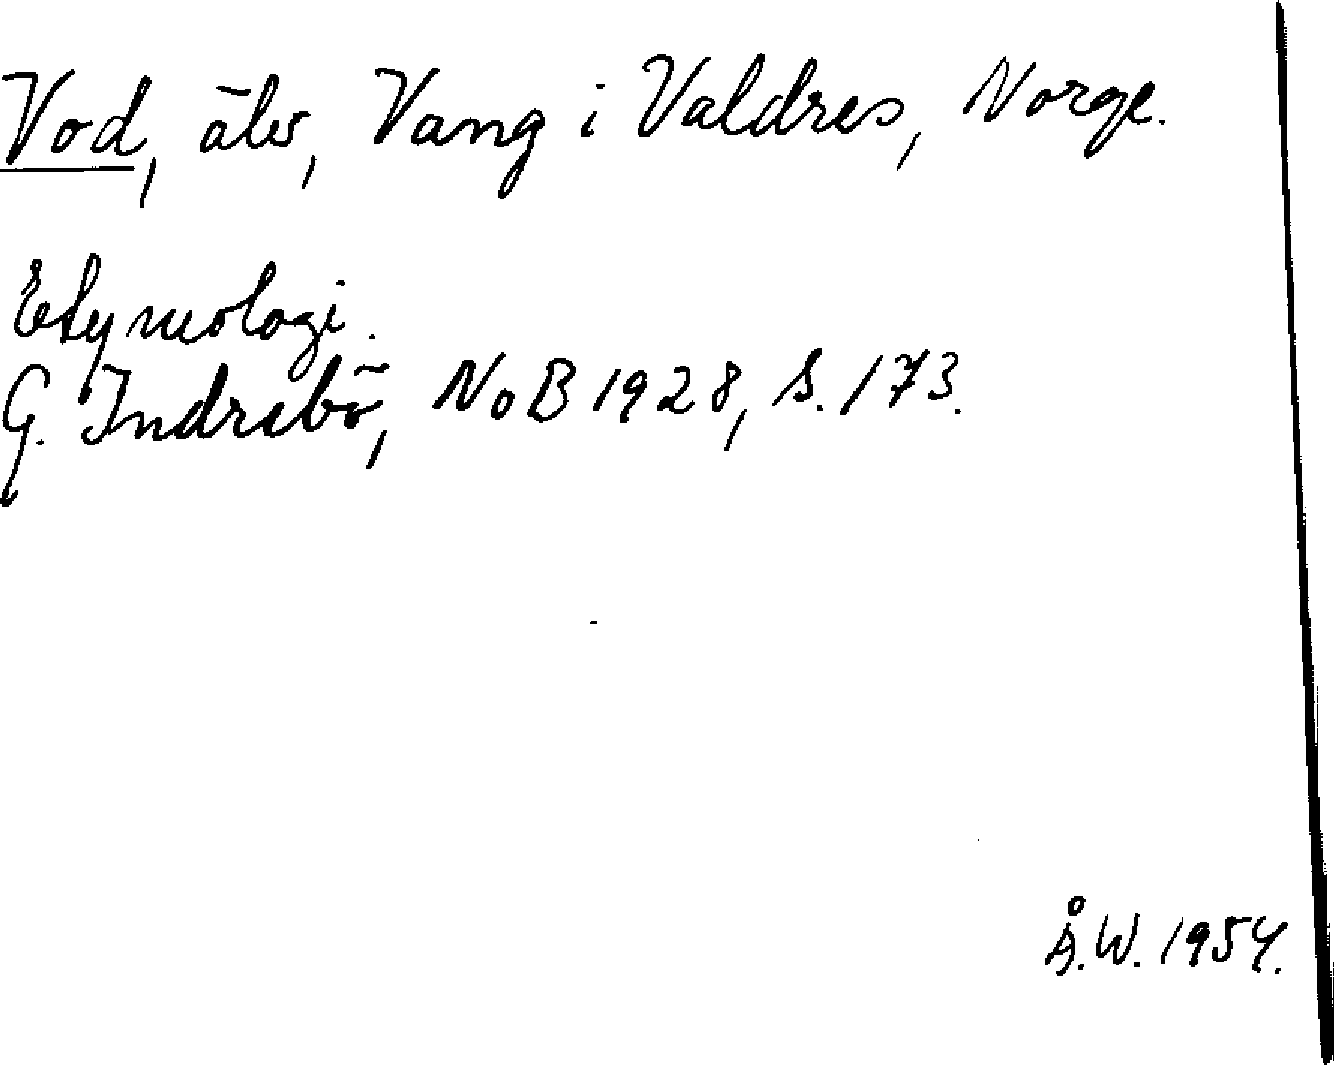 Vod, älv, Vang i Valdres, Norge.
Etymologi.
G. Indrebö, NoB 1928, S. 173.
Å.W. 1954.